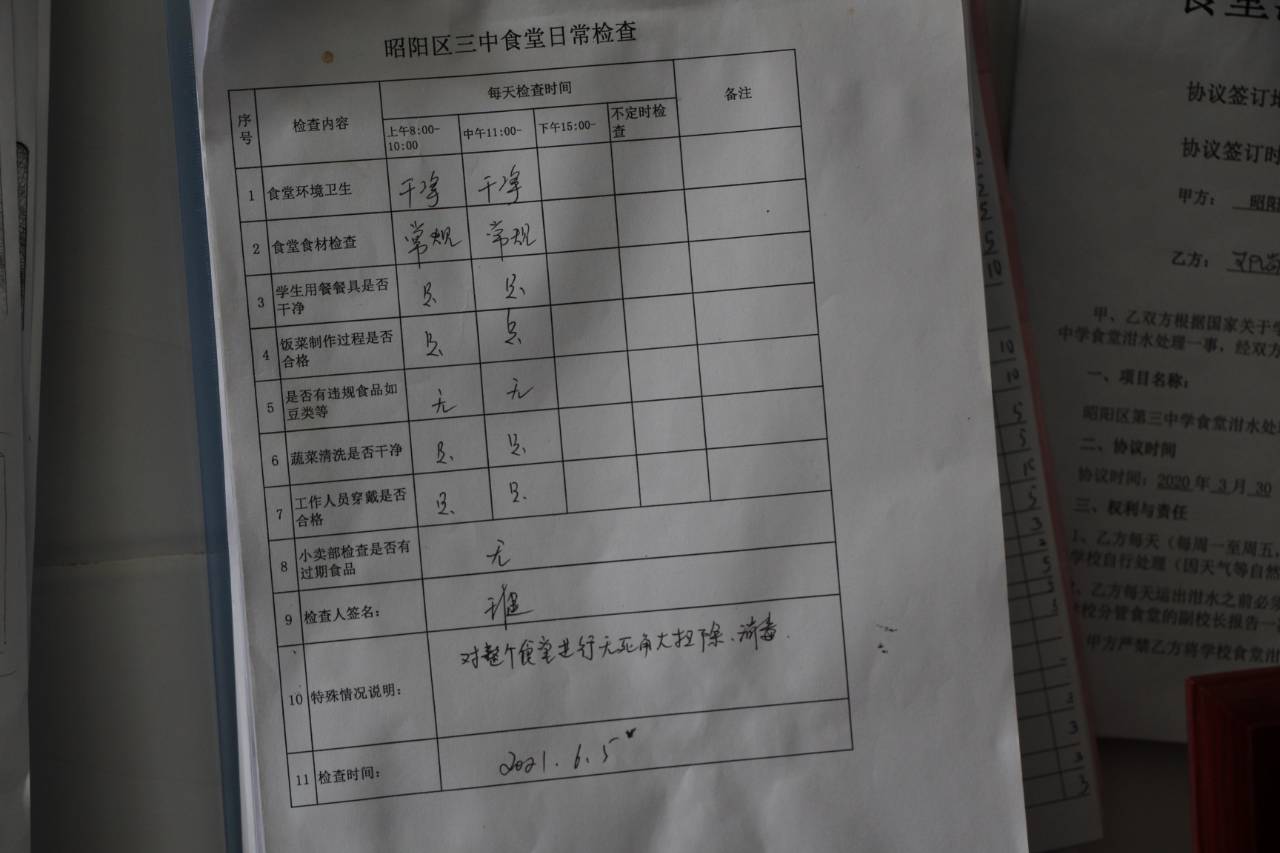 昭阳区三中食堂日常检查
序号 检查内容 每天检查时间 备注
上午8:00-10:00 中午11:00- 下午15:00- 不定时检查
1 食堂环境卫生 干净 干净
2 食堂食材检查 常规 常规
3 学生用餐餐具是否干净 是 是
4 饭菜制作过程是否合格 是 是
5 是否有违规食品如豆类等 无 无
6 蔬菜清洗是否干净 是 是
7 工作人员穿戴是否合格 是 是
8 小卖部检查是否有过期食品 无
9 检查人签名:
10 特殊情况说明: 对整个食堂进行无死角大扫除、消毒.
11 检查时间: 2021.6.5
食堂
协议签订
协议签订时
甲方: 昭阳
乙方:
甲、乙双方根据国家关于
中学食堂泔水处理一事，经双方
一、项目名称:
昭阳区第三中学食堂泔水处
二、协议时间
协议时间: 2020年3月30
三、权利与责任
1、乙方每天（每周一至周五
学校自行处理（因天气等自然
乙方每天运出泔水之前必须
校分管食堂的副校长报告一
甲方严禁乙方将学校食堂泔